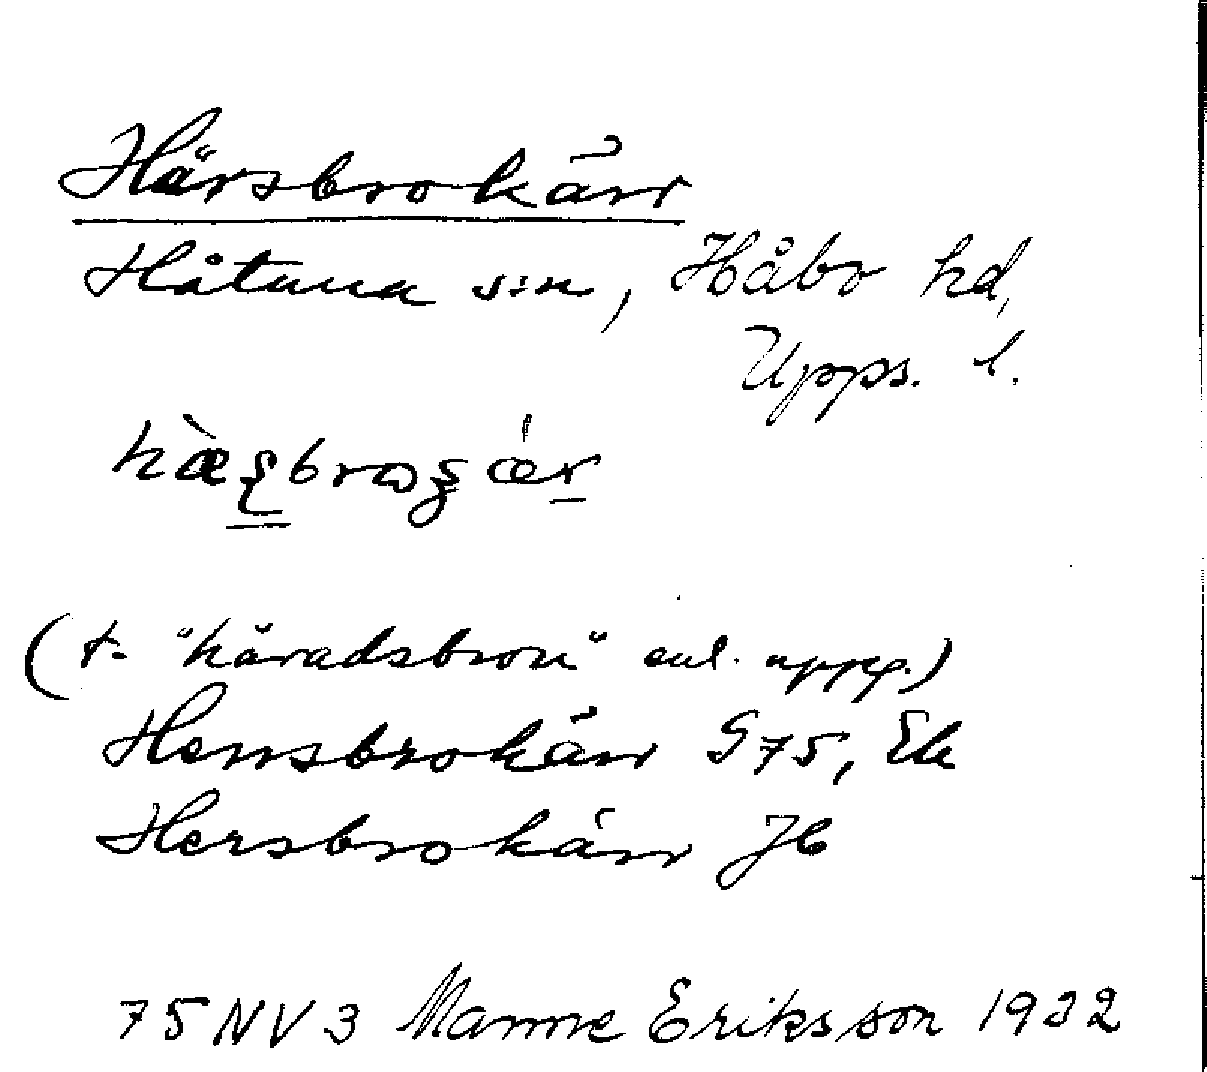 Härsbrokärr
Håtuna s:n, Håbo hd,
Upps. l.
(t. "häradsbron" enl. uppg.)
Herrsbrokärr G75, Ek
Hersbrokärr Jb
75NV3 Manne Eriksson 1932